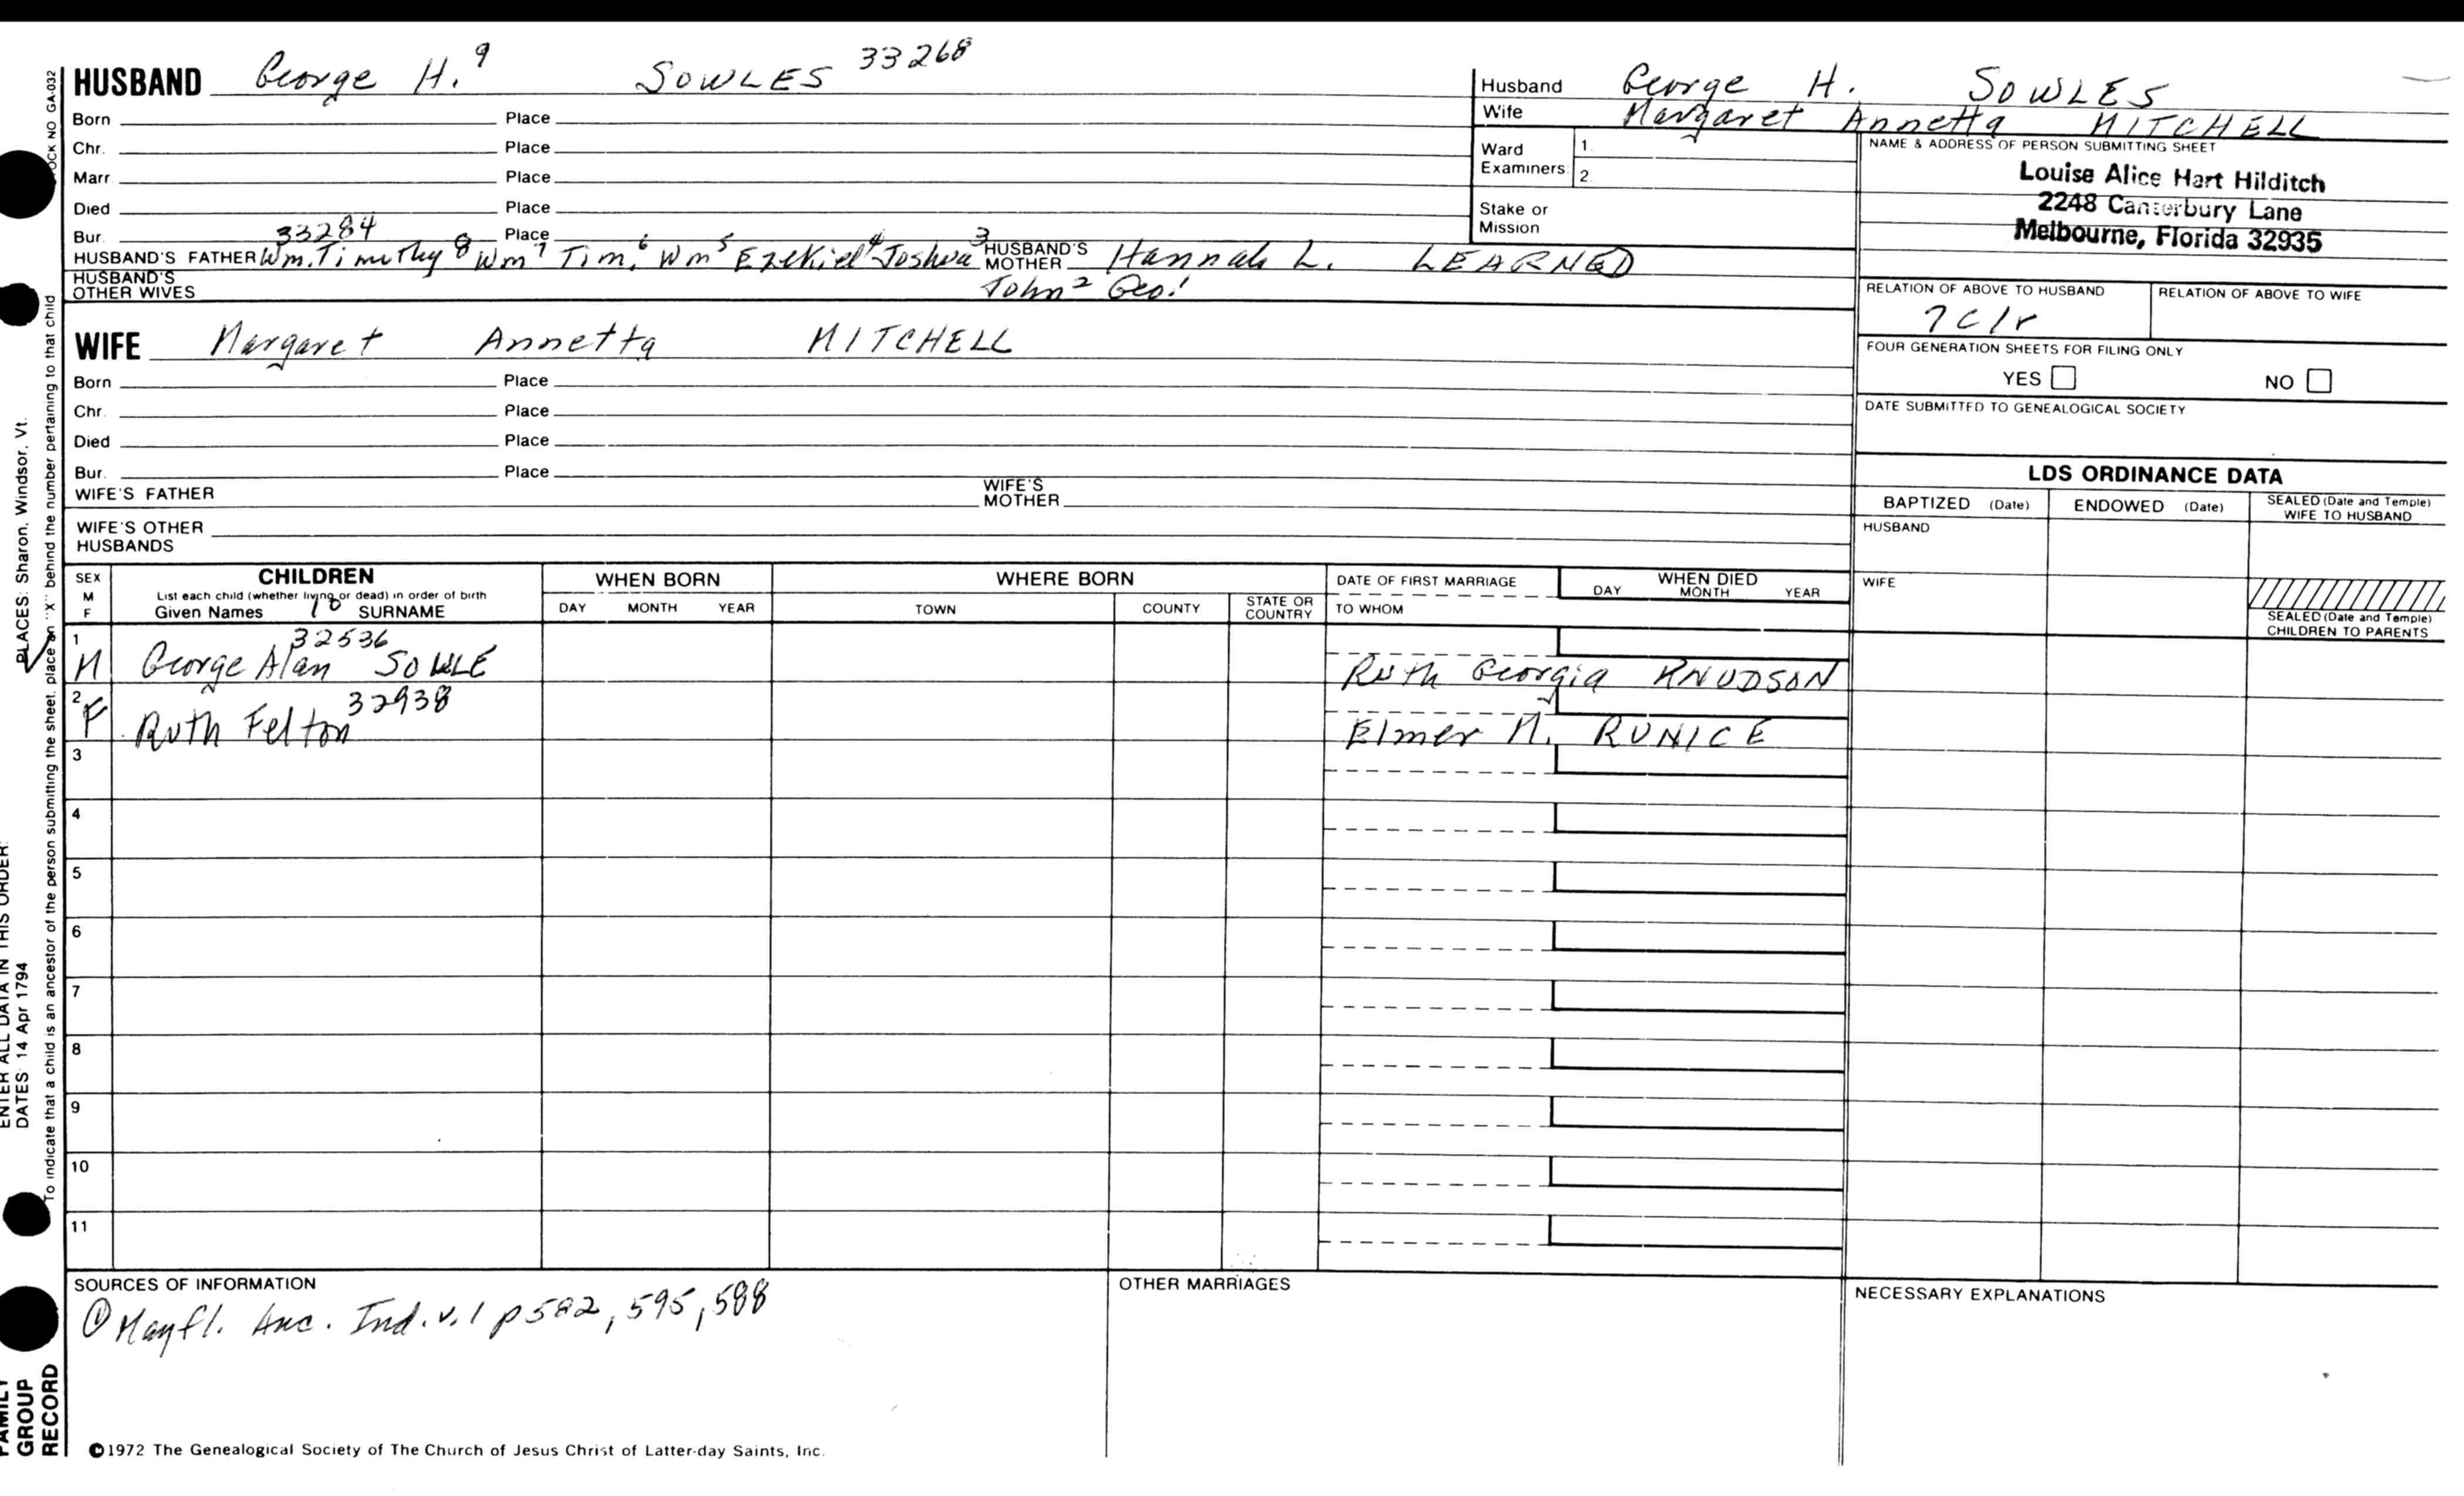 HUSBAND George H.⁹ SOWLES 33268
Born Place
Chr. Place
Marr Place
Died Place
Bur. 33284 Place
HUSBAND'S FATHER Wm. Timothy⁸ Wm⁷ Tim.⁶ Wm⁵ Ezekiel⁴ Joshua³ HUSBAND'S MOTHER Hannah L. LEARNED
HUSBAND'S OTHER WIVES John² Geo.¹
WIFE Margaret Annetta MITCHELL
Born Place
Chr. Place
Died Place
Bur. Place
WIFE'S FATHER WIFE'S MOTHER
WIFE'S OTHER HUSBANDS
Husband George H. SOWLES
Wife Margaret Annetta MITCHELL
Ward Examiners 1. 2.
Stake or Mission
NAME & ADDRESS OF PERSON SUBMITTING SHEET
Louise Alice Hart Hilditch
2248 Canterbury Lane
Melbourne, Florida 32935
RELATION OF ABOVE TO HUSBAND RELATION OF ABOVE TO WIFE
7c1r
FOUR GENERATION SHEETS FOR FILING ONLY
YES NO
DATE SUBMITTED TO GENEALOGICAL SOCIETY
LDS ORDINANCE DATA
BAPTIZED (Date) ENDOWED (Date) SEALED (Date and Temple) WIFE TO HUSBAND
HUSBAND
WIFE
SEALED (Date and Temple) CHILDREN TO PARENTS
SEX M F
CHILDREN
List each child (whether living or dead) in order of birth
Given Names 10 SURNAME
WHEN BORN
DAY MONTH YEAR
WHERE BORN
TOWN COUNTY STATE OR COUNTRY
DATE OF FIRST MARRIAGE
TO WHOM
WHEN DIED
DAY MONTH YEAR
1 32536
M George Alan SOWLE Ruth Georgia KNUDSON
2 32938
F Ruth Felton Elmer M. RUNICE
3
4
5
6
7
8
9
10
11
SOURCES OF INFORMATION
① Mayfl. Anc. Ind. v.1 p 582, 595, 588
OTHER MARRIAGES
NECESSARY EXPLANATIONS
©1972 The Genealogical Society of The Church of Jesus Christ of Latter-day Saints, Inc.
FAMILY GROUP RECORD
ENTER ALL DATA IN THIS ORDER:
DATES: 14 Apr 1794
PLACES: Sharon, Windsor, Vt.
To indicate that a child is an ancestor of the person submitting the sheet, place an "X" behind the number pertaining to that child
NO GA-032